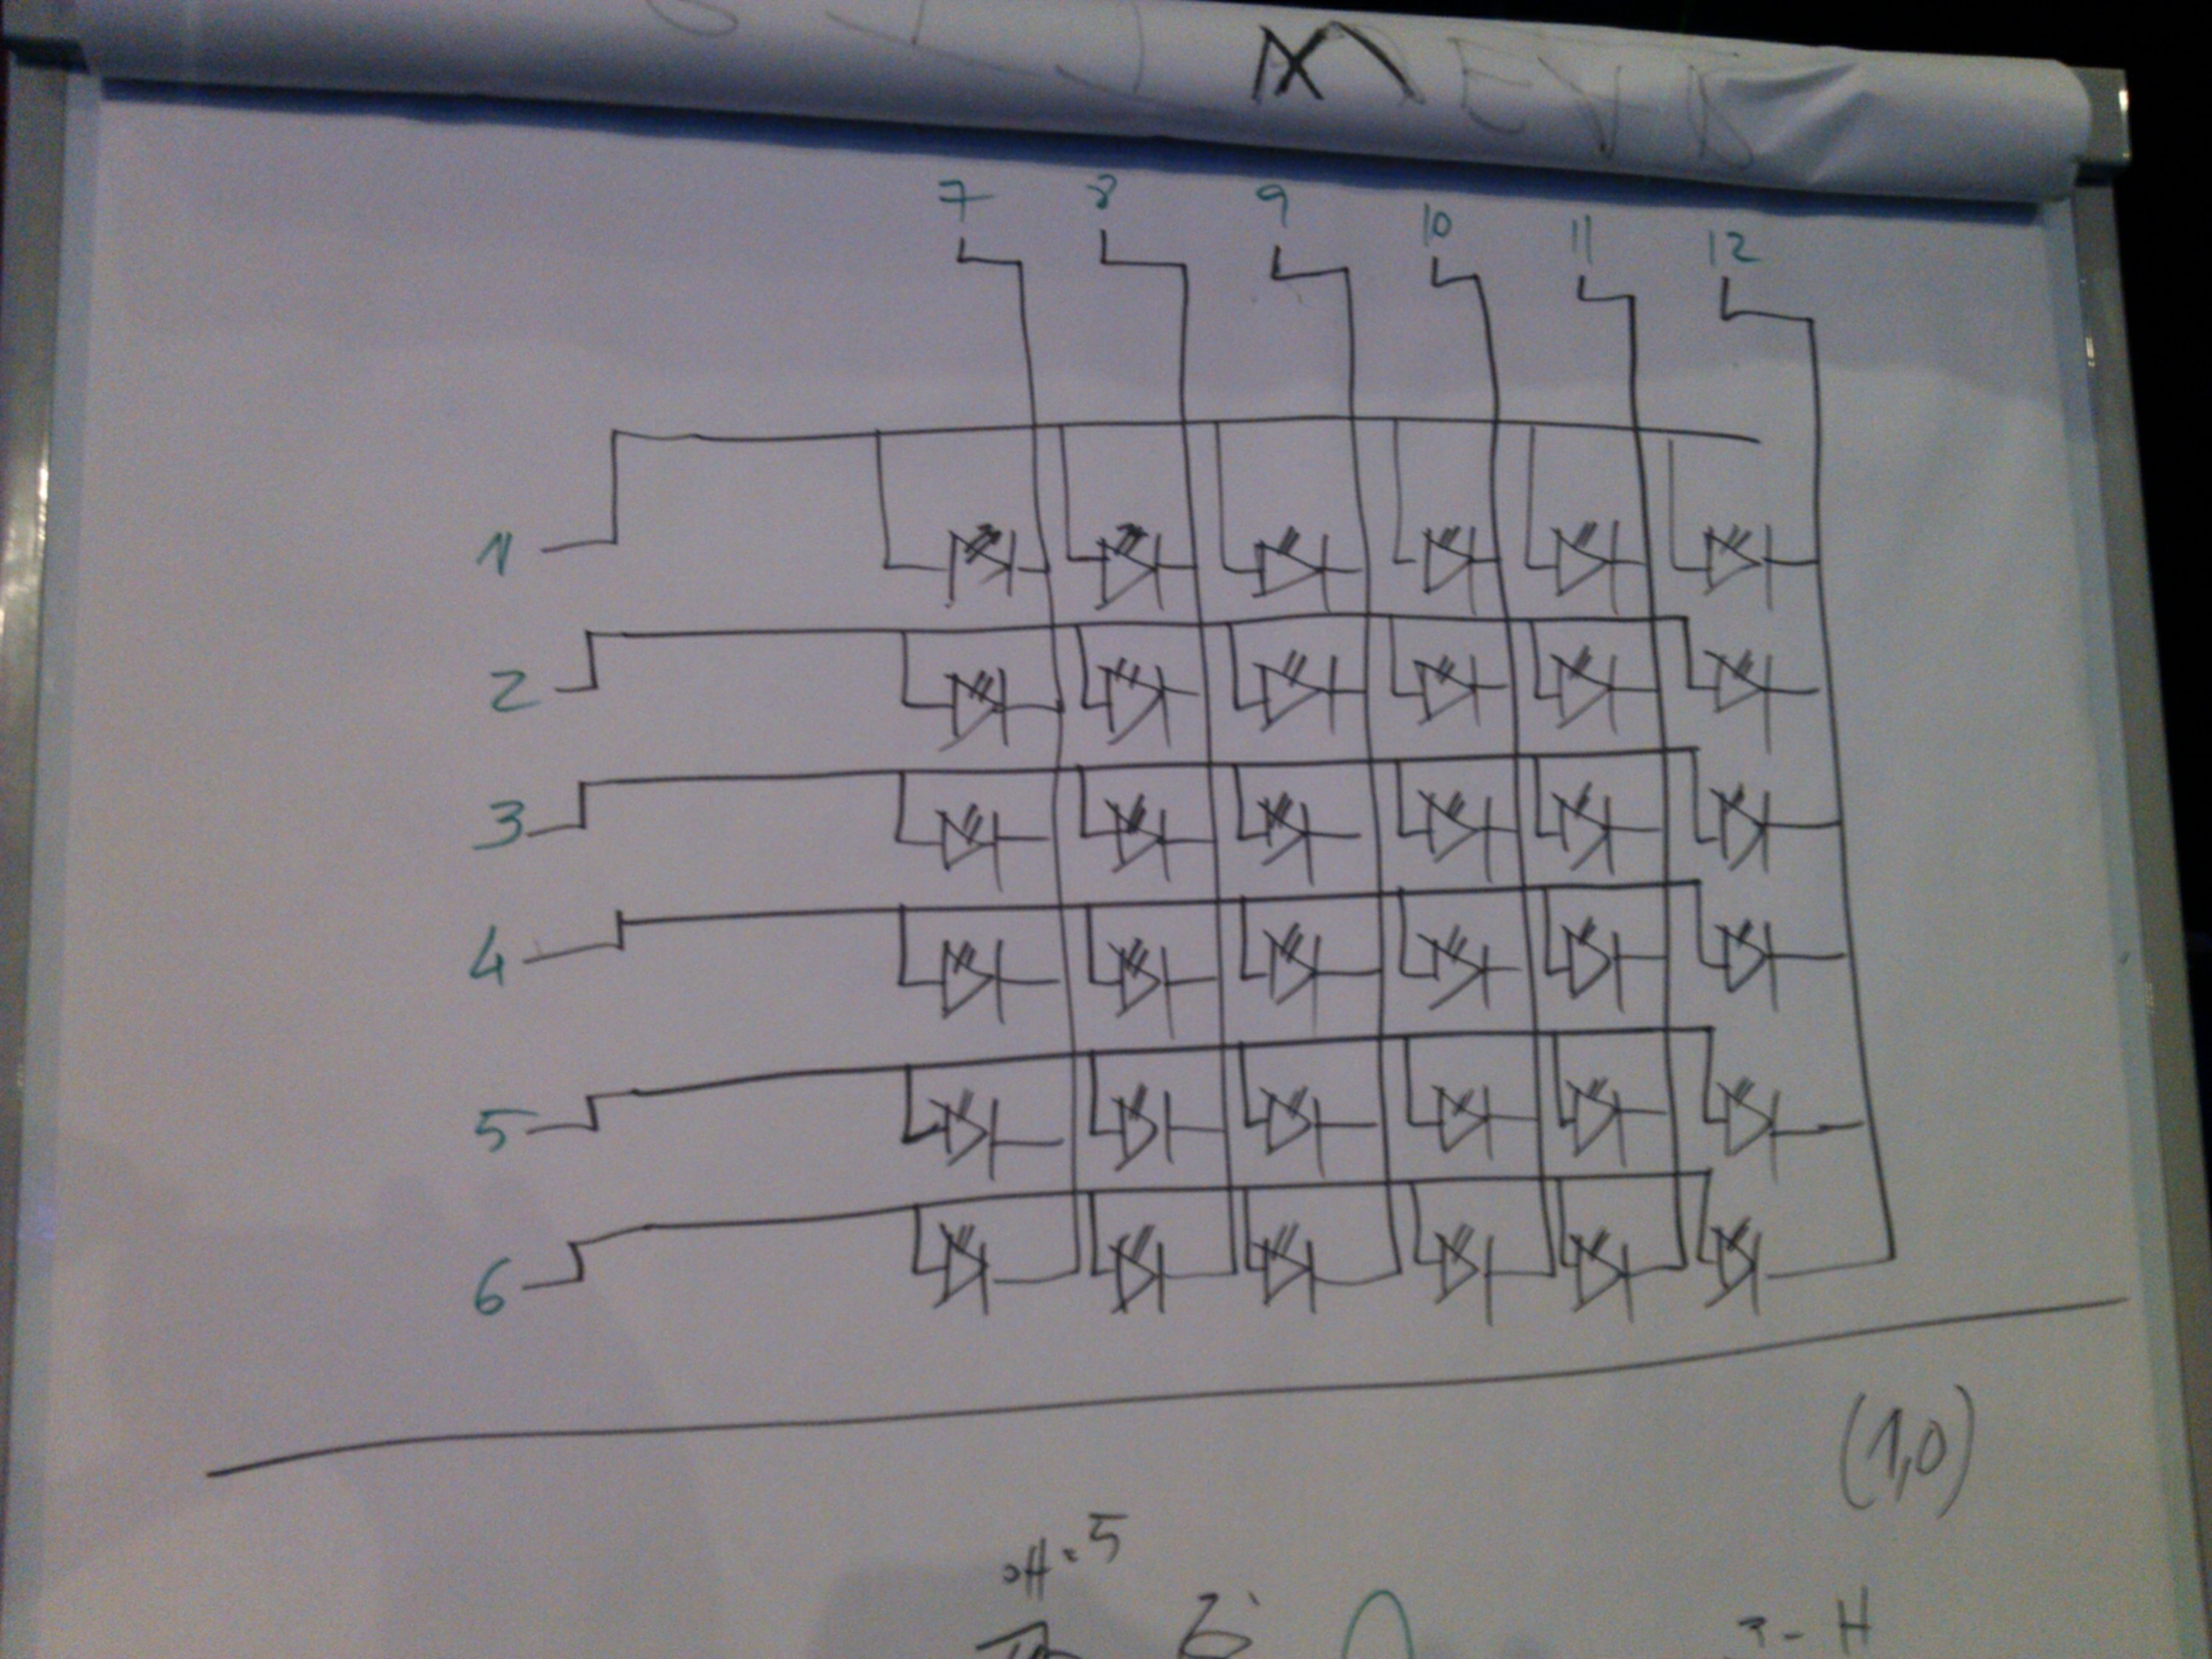 7 8 9 10 11 12
1
2
3
4
5
6
(1,0)